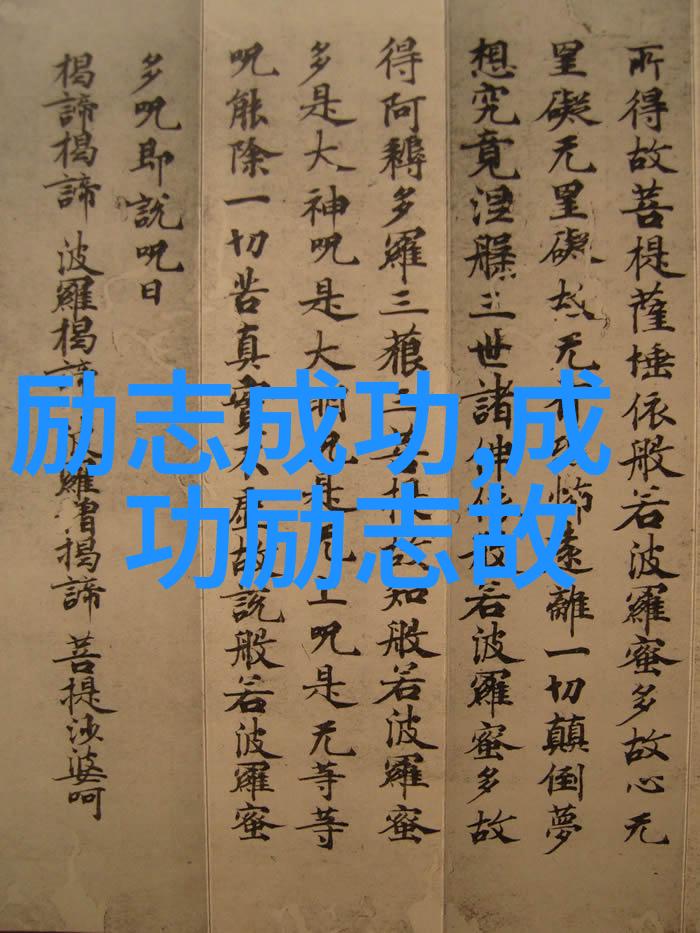 励志成功,成
功励志故
所得故菩提薩埵依般若波羅蜜多故心无
罣礙无罣礙故无有恐怖遠離一切顛倒夢
想究竟涅槃三世諸佛依般若波羅蜜多故
得阿耨多羅三藐三菩提故知般若波羅蜜
多是大神呪是大明呪是无上呪是无等等
呪能除一切苦真實不虛故說般若波羅蜜
多呪即說呪曰
揭諦揭諦 波羅揭諦 波羅僧揭諦 菩提沙婆呵